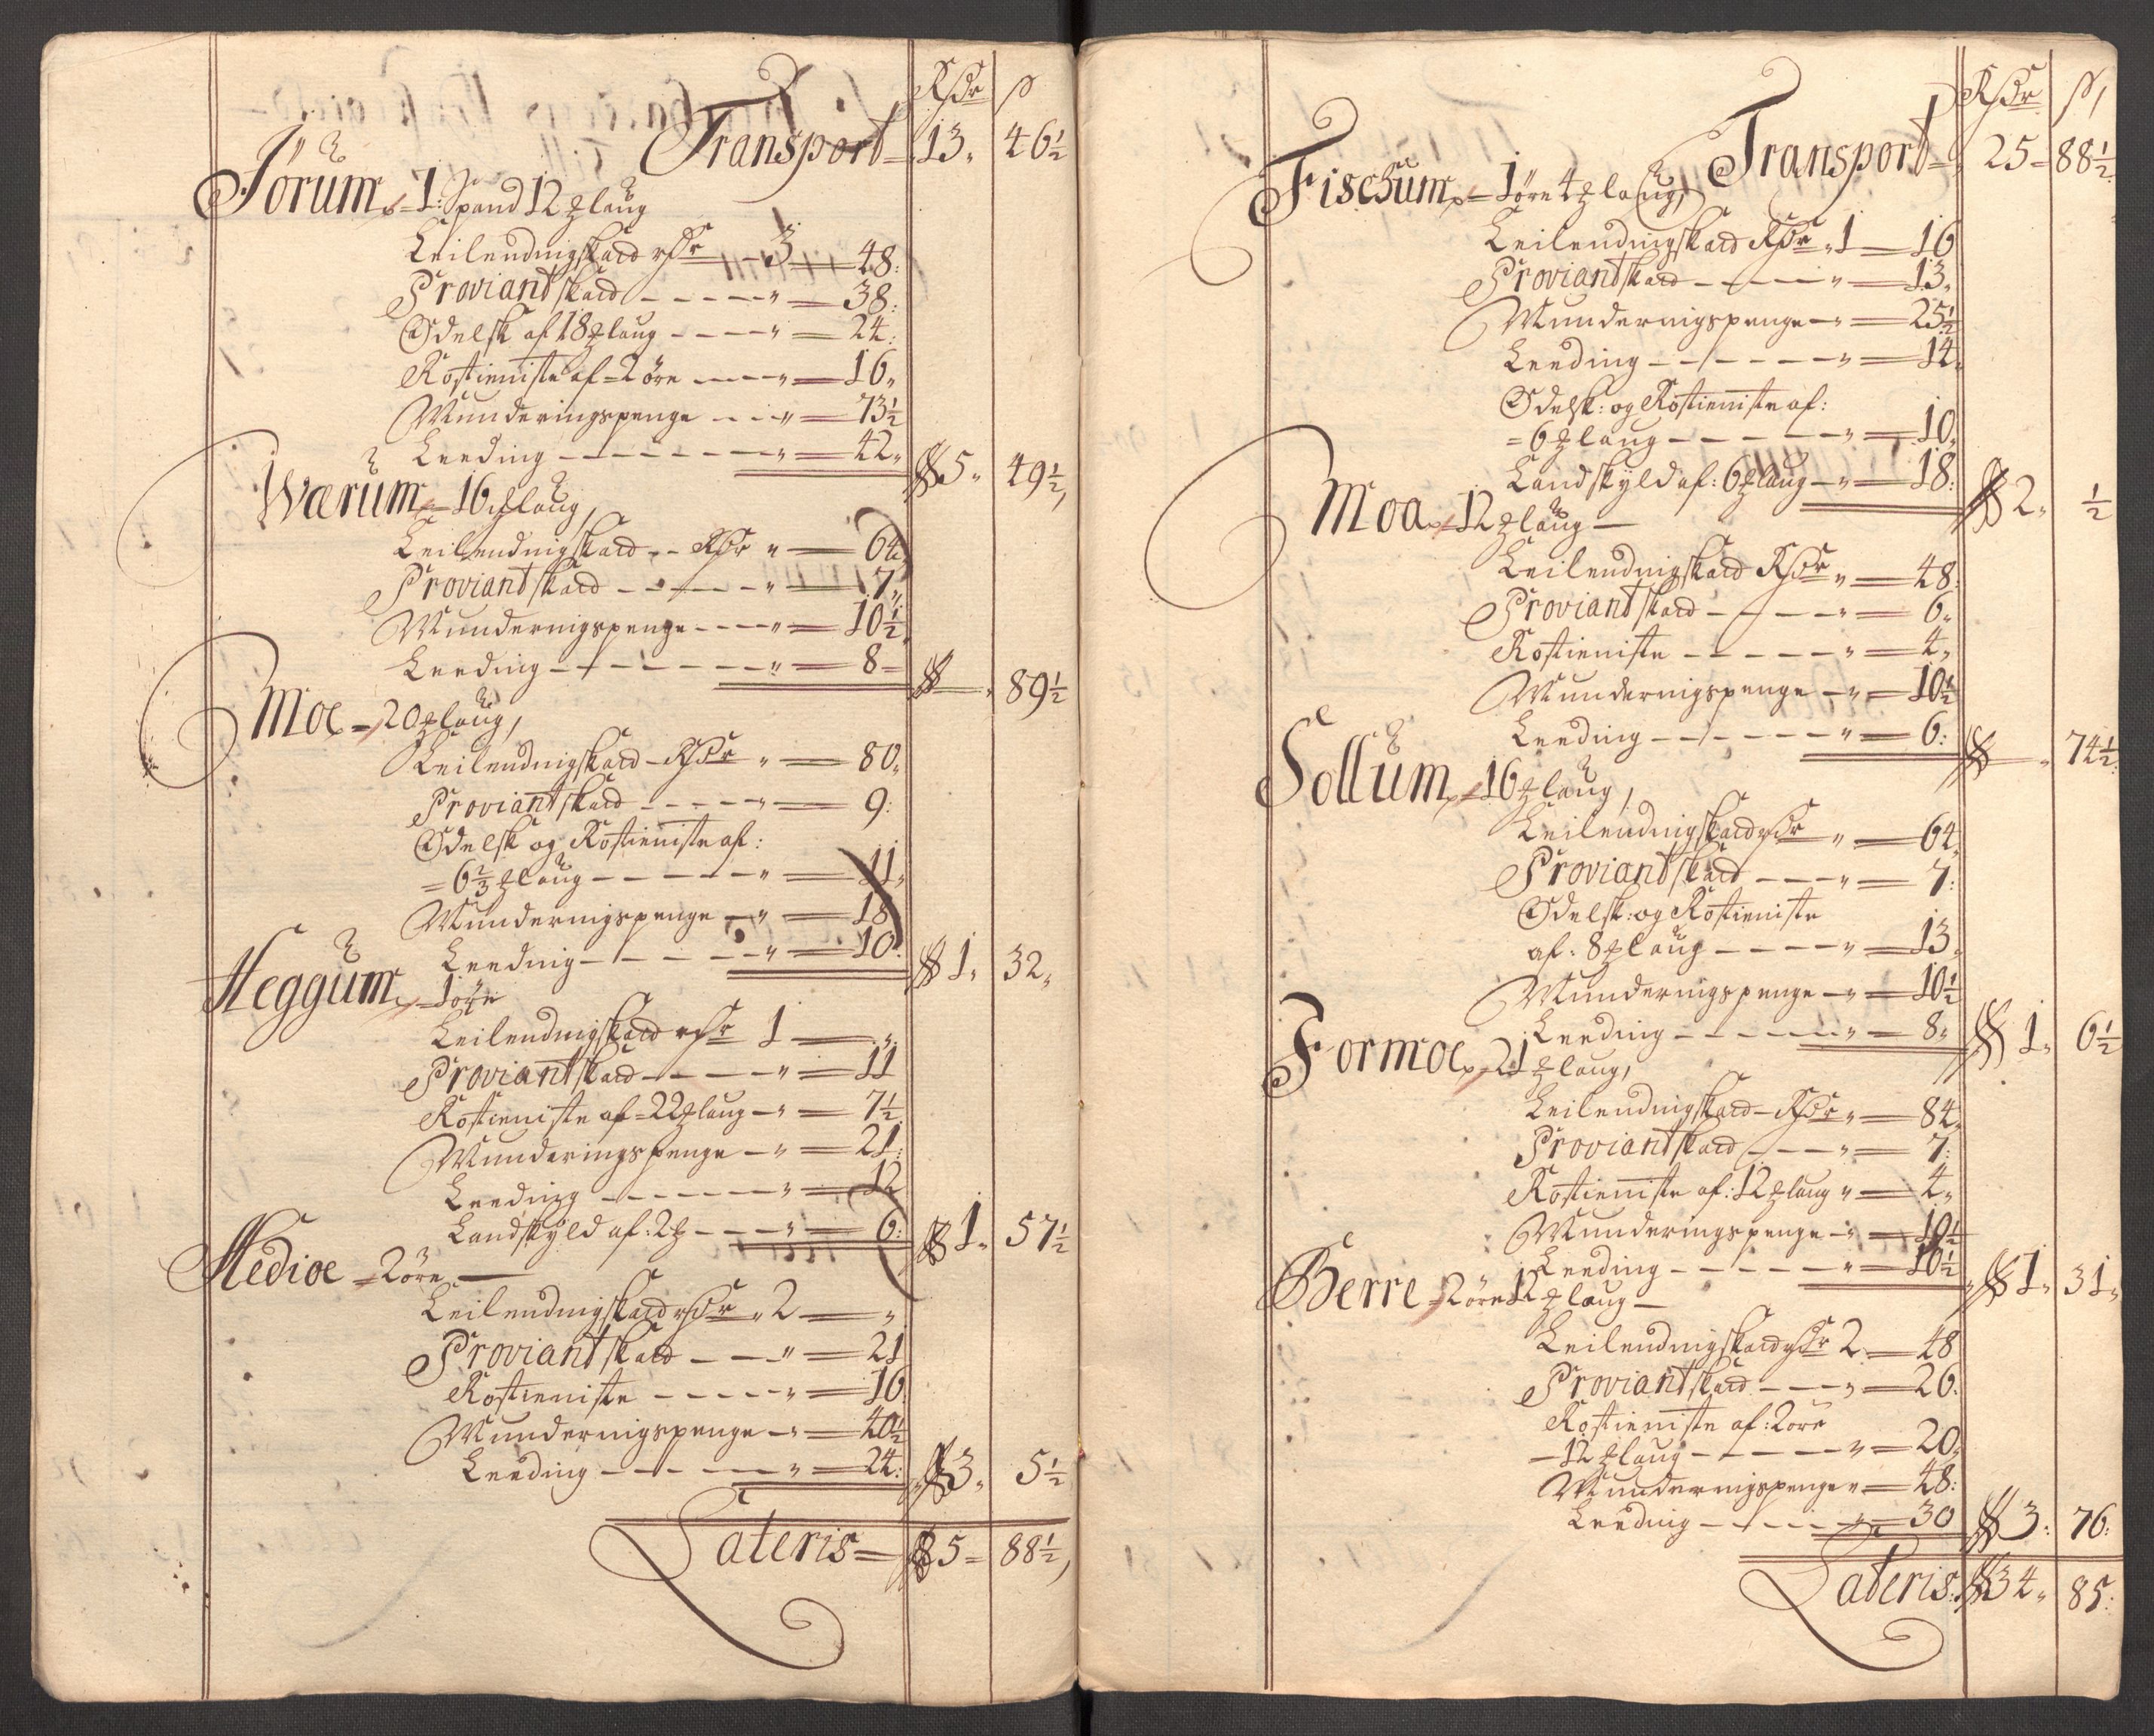 Rdr ß
Transport = 13„ 46½
Förum = 1: Spand 12 ℔ laug
Leilendingskatt rdr 3 — 48:
Proviantskatt - - - - „ = 38:
Odelsk af 18 ℔ laug - - - „ = 24:
Rostieniste af = 2 öre - - - „ = 16„
Munderingspenge - - - „ = 73½
Leeding - - - - - - „ = 42„ 5„ 49½,
Wærum = 16 ℔ laug,
Leilendingskatt - - Rdr „ — 64
Proviantskatt - - - - „ — 7„
Munderingspenge - - - „ = 10½
Leeding - - - - - - „ = 8 - — „ 89½
Moe = 20 ℔ laug,
Leilendingskatt - Rdr „ — 80„
Proviantskatt - - - - „ — 9:
Odelsk og Rostieniste af:
= 6⅔ ℔ laug - - - - - „ — 11„
Munderingspenge - „ — 18
Leeding - - - - - - „ — 10: 1„ 32„
Heggum = 1 öre
Leilendingskatt rdr 1 — „
Proviantskatt - - - - „ = 11
Rostieniste af = 22 ℔ laug - „ = 7½
Munderingspenge - „ = 21:
Leeding - - - - - - „ = 12
Landskyld af: 2 ℔ - - - „ = 6: 1„ 57½
Medioe = 2 öre —
Leilendingskatt rdr „ 2 — „
Proviantskatt - - - „ = 21
Rostieniste - - - - - „ = 16
Munderingspenge - „ = 40½
Leeding - - - - - „ = 24: 3„ 5½
Lateris = 25 = 88½,
Rdr ß,
Transport = 25 = 88½
Fischum = 1 öre 4 ℔ laug,
Leilendingskatt Rdr „ 1 — 16
Proviantskatt - - - - „ = 13„
Munderingspenge - „ = 25½
Leeding - - - - - - „ = 14„
Odelsk: og Rostieniste af:
= 6 ℔ laug - - - - - „ = 10„
Landskyld af: 6 ℔ laug - „ = 18: 2„ ½
Moa = 12 ℔ laug —
Leilendingskatt Rdr „ — 48:
Proviantskatt - - - - „ = 6„
Rostieniste - - - - - „ = 4„
Munderingspenge - „ = 10½
Leeding - - - - - - „ = 6: — „ 74½:
Sollum = 16 ℔ laug,
Leilendingskatt rdr „ — 64„
Proviantskatt - - - „ = 7:
Odelsk: og Rostieniste
af: 8 ℔ laug - - - - „ = 13„
Munderingspenge - „ = 10½
Leeding - - - - - - „ = 8„ 1„ 6½
Formoe = 21 ℔ laug,
Leilendingskatt - Rdr „ = 84„
Proviantskatt - - - „ = 7:
Rostieniste af: 12 ℔ laug „ = 4„
Munderingspenge - „ = 10½
Leeding - - - - - - „ = 10½ 1„ 31„
Berre = 2 öre 12 ℔ laug —
Leilendingskatt rdr 2 — 48
Proviantskatt - - - „ = 26:
Rostieniste af: 2 öre
- 12 ℔ laug - - - - - „ = 20„
Munderingspenge „ = 48:
Leeding - - - - - „ = 30 3: 76:
Lateris: 34„ 85: